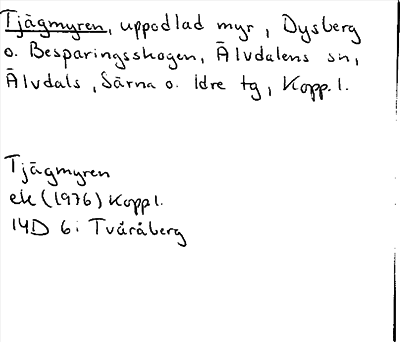 Tjägmyren, uppodlad myr, Dysberg
o. Besparingsskogen, Älvdalens sn,
Älvdals, Särna o. Idre tg, Kopp. l.
Tjägmyren
ek (1976) Kopp l.
14D 6i Tvåråberg